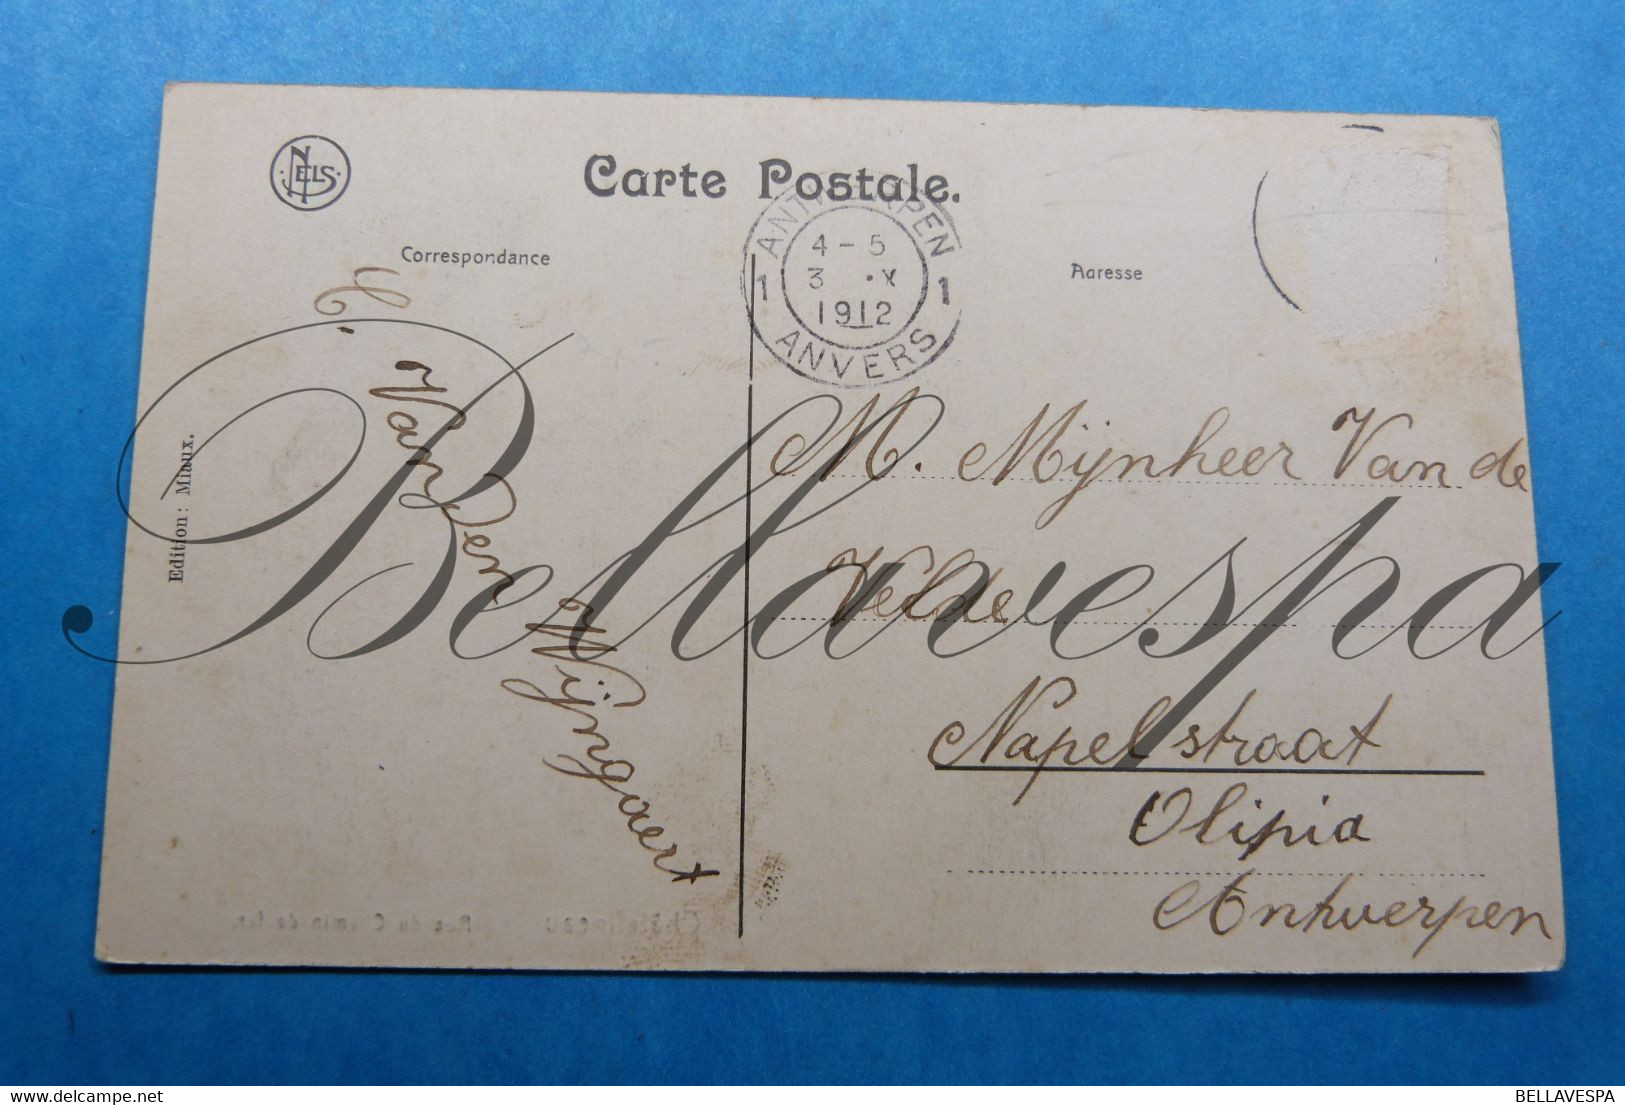 NELS
Carte Postale.
Correspondance
Adresse
ANTWERPEN
4-5
3 ·X
1 1
1912
ANVERS
Edition: Miaux.
C. Van Den Wijngaert
M. Mijnheer Van de
Velde
Napelstraat
Olipia
Antwerpen
Châtelineau Rue du Chemin de fer.
Bellavespa
delcampe.net
BELLAVESPA